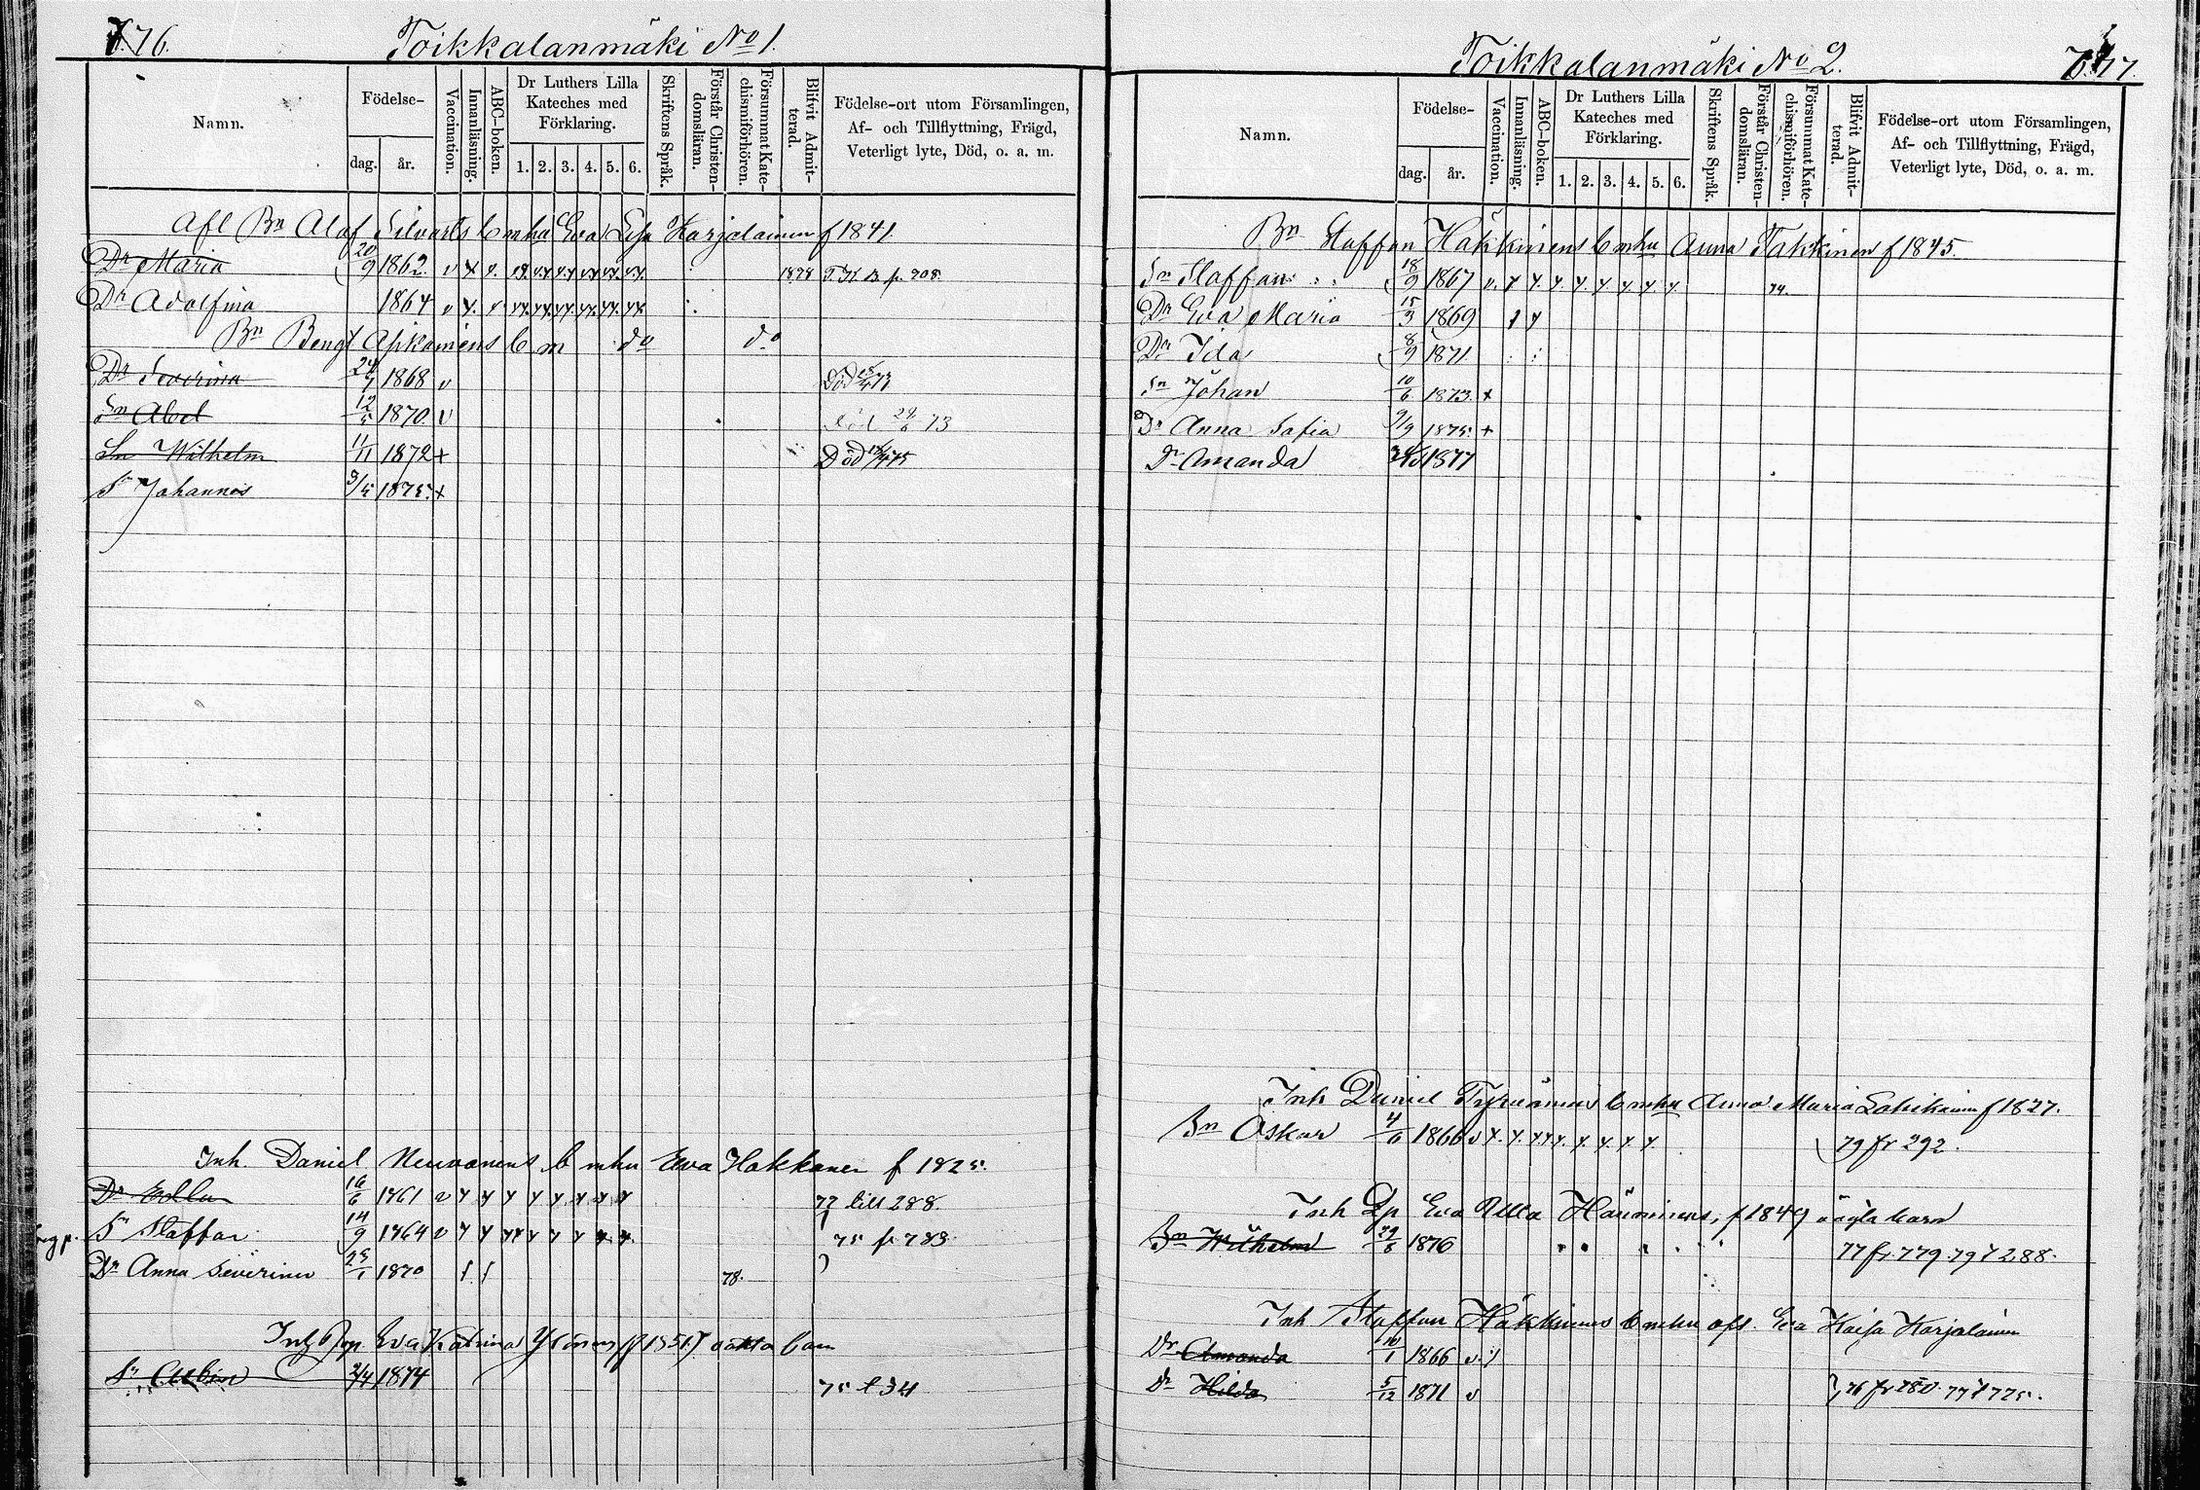 776.
Toikkalanmäki No 1.
Namn.
Födelse-
dag.
år.
Vaccination.
Innanläsning.
ABC-boken.
Dr Luthers Lilla
Kateches med
Förklaring.
1. 2. 3. 4. 5. 6.
Skriftens Språk.
Förstår Christen-
domsläran.
Försummat Kate-
chismiförhören.
Blifvit Admit-
terad.
Födelse-ort utom Församlingen,
Af- och Tillflyttning, Frägd,
Veterligt lyte, Död, o. a. m.
Afl Bn Olof Silvasts b m hu Eva Lisa Karjalainen f 1841.
Dr Maria 20/9 1862. v 1878 p. 208.
Dr Adolfina 1864 v
Bn Bengt b m do do
Dr Severina 24/7 1868 v Död
Sn Abel 12/5 1870. v död 73
Sn Wilhelm 11/11 1872 + Död 75
Sn Johannes 3/5 1875. +
Inh. Daniel Neuvonens b m hu Eva Hakkanen f 1825.
Dr Ulla 16/6 1861 v 77 till 288.
Sn Staffan 14/9 1864 v 75 fr 783.
Dr Anna Severina 25/1 1870 78.
Inh Eva Katrina f 1851 oäkta barn
Sn Albin 2/4 1874 75 t 34
Toikkalanmäki No 2.
777.
Namn.
Födelse-
dag.
år.
Vaccination.
Innanläsning.
ABC-boken.
Dr Luthers Lilla
Kateches med
Förklaring.
1. 2. 3. 4. 5. 6.
Skriftens Språk.
Förstår Christen-
domsläran.
Försummat Kate-
chismiförhören.
Blifvit Admit-
terad.
Födelse-ort utom Församlingen,
Af- och Tillflyttning, Frägd,
Veterligt lyte, Död, o. a. m.
Bn Staffan Häkkinens b m hu Anna Takkinen f 1845.
Sn Staffan 18/9 1867 v. 74.
Dr Eva Maria 15/3 1869
Dr Ida 8/9 1871
Sn Johan 10/6 1873. +
Dr Anna Sofia 9/9 1875. +
Dr Amanda 1877
Inh Daniel b m hu Anna Maria f 1827.
Sn Oskar 4/6 1866 v 79 fr 292.
Inh Eva Ulla f 1849 oägta barn
Sn Wilhelm 29/8 1876 77 fr. 779. 79 t 288.
Inh Staffan Häkkinens b m hu afl. Eva Kaisa Karjalainen
Dr Amanda 10/1 1866 v.
Dr Hilda 5/12 1871 v 76 fr 780. 77 t 775.